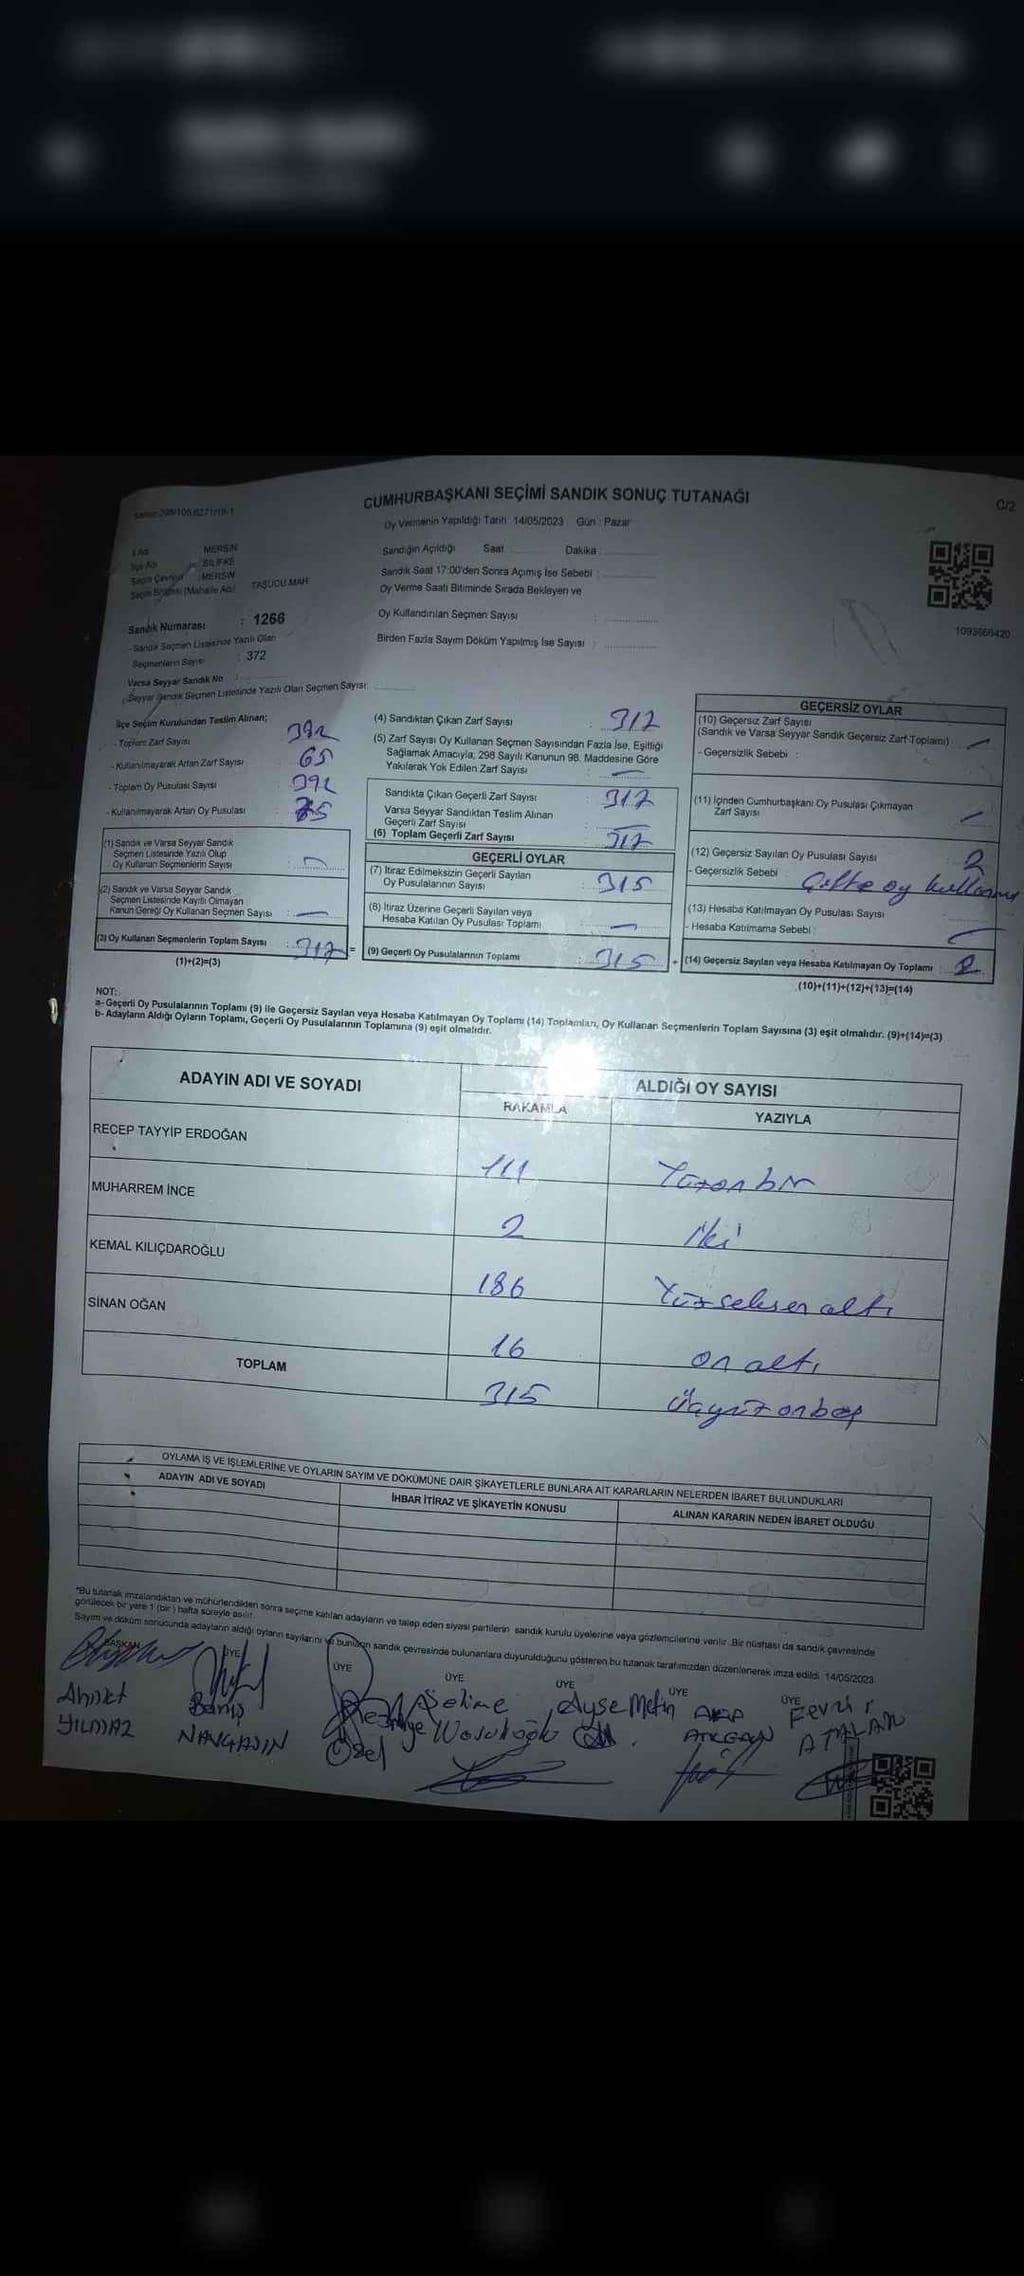 CUMHURBAŞKANI SEÇİMİ SANDIK SONUÇ TUTANAĞI
C/2
Oy Vermenin Yapıldığı Tarih 14/05/2023 Gün : Pazar
İl Adı : MERSİN
İlçe Adı : SİLİFKE
Seçim Çevresi : MERSİN
Seçim Bölgesi (Mahalle Adı) TAŞUCU MAH
Sandık Numarası : 1266
- Sandık Seçmen Listesinde Yazılı Olan
Seçmenlerin Sayısı : 372
Varsa Seyyar Sandık No :
- Seyyar Sandık Seçmen Listesinde Yazılı Olan Seçmen Sayısı:
Sandığın Açıldığı Saat Dakika
Sandık Saat 17:00'den Sonra Açmış İse Sebebi :
Oy Verme Saati Bitiminde Sırada Bekleyen ve
Oy Kullandırılan Seçmen Sayısı :
Birden Fazla Sayım Döküm Yapılmış İse Sayısı :
1093666420
İlçe Seçim Kurulundan Teslim Alınan;
- Toplam Zarf Sayısı : 392
- Kullanılmayarak Artan Zarf Sayısı : 65
- Toplam Oy Pusulası Sayısı : 392
- Kullanılmayarak Artan Oy Pusulası : 75
(1) Sandık ve Varsa Seyyar Sandık
Seçmen Listesinde Yazılı Olup
Oy Kullanan Seçmenlerin Sayısı :
(2) Sandık ve Varsa Seyyar Sandık
Seçmen Listesinde Kayıtlı Olmayan
Kanun Gereği Oy Kullanan Seçmen Sayısı : —
(3) Oy Kullanan Seçmenlerin Toplam Sayısı : 317 =
(1)+(2)=(3)
(4) Sandıktan Çıkan Zarf Sayısı : 317
(5) Zarf Sayısı Oy Kullanan Seçmen Sayısından Fazla İse, Eşitliği
Sağlamak Amacıyla; 298 Sayılı Kanunun 98. Maddesine Göre
Yakılarak Yok Edilen Zarf Sayısı : —
Sandıkta Çıkan Geçerli Zarf Sayısı : 317
Varsa Seyyar Sandıktan Teslim Alınan
Geçerli Zarf Sayısı : —
(6) Toplam Geçerli Zarf Sayısı : 317
GEÇERLİ OYLAR
(7) İtiraz Edilmeksizin Geçerli Sayılan
Oy Pusulalarının Sayısı : 315
(8) İtiraz Üzerine Geçerli Sayılan veya
Hesaba Katılan Oy Pusulası Toplamı : —
(9) Geçerli Oy Pusulalarının Toplamı : 315 +
GEÇERSİZ OYLAR
(10) Geçersiz Zarf Sayısı
(Sandık ve Varsa Seyyar Sandık Geçersiz Zarf Toplamı) —
- Geçersizlik Sebebi :
(11) İçinden Cumhurbaşkanı Oy Pusulası Çıkmayan
Zarf Sayısı —
(12) Geçersiz Sayılan Oy Pusulası Sayısı : 2
- Geçersizlik Sebebi : Çifte oy
(13) Hesaba Katılmayan Oy Pusulası Sayısı
- Hesaba Katılmama Sebebi : —
(14) Geçersiz Sayılan veya Hesaba Katılmayan Oy Toplamı : 2
(10)+(11)+(12)+(13)=(14)
NOT:
a- Geçerli Oy Pusulalarının Toplamı (9) ile Geçersiz Sayılan veya Hesaba Katılmayan Oy Toplamı (14) Toplamları, Oy Kullanan Seçmenlerin Toplam Sayısına (3) eşit olmalıdır. (9)+(14)=(3)
b- Adayların Aldığı Oyların Toplamı, Geçerli Oy Pusulalarının Toplamına (9) eşit olmalıdır.
ADAYIN ADI VE SOYADI
ALDIĞI OY SAYISI
RAKAMLA YAZIYLA
RECEP TAYYİP ERDOĞAN 111 Yüzonbir
MUHARREM İNCE 2 iki
KEMAL KILIÇDAROĞLU 186 Yüzseksenaltı
SİNAN OĞAN 16 on altı
TOPLAM 315 Üçyüzonbeş
OYLAMA İŞ VE İŞLEMLERİNE VE OYLARIN SAYIM VE DÖKÜMÜNE DAİR ŞİKAYETLERLE BUNLARA AİT KARARLARIN NELERDEN İBARET BULUNDUKLARI
ADAYIN ADI VE SOYADI
İHBAR İTİRAZ VE ŞİKAYETİN KONUSU
ALINAN KARARIN NEDEN İBARET OLDUĞU
*Bu tutanak imzalandıktan ve mühürlendikten sonra seçime katılan adayların ve talep eden siyasi partilerin sandık kurulu üyelerine veya gözlemcilerine verilir. Bir nüshası da sandık çevresinde
görülecek bir yere 1 (bir) hafta süreyle asılır.
Sayım ve döküm sonucunda adayların aldığı oyların sayılarını ve bunların sandık çevresinde bulunanlara duyurulduğunu gösteren bu tutanak tarafımızdan düzenlenerek imza edildi. 14/05/2023
BAŞKAN ÜYE ÜYE ÜYE ÜYE ÜYE ÜYE
Ahmet Barış Selime Ayşe Metin Fevzi
YILMAZ Özel ATALAN